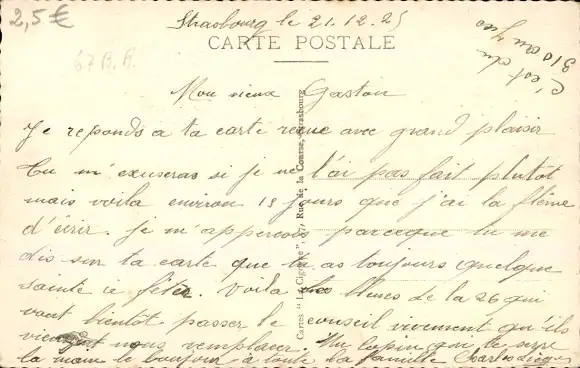 2,5€
Strasbourg le 21.12.25
CARTE POSTALE
c'est du
310 au jus
67 B.R.
Mon vieux Gaston
Je reponds a ta carte reçue avec grand plaisir
Tu m'exuseras si je ne l'ai pas fait plutot
mais voila environ 18 jours que j'ai la flême
d'écrir. je m'apercois parceque tu me
dis sur ta carte que tu as toujours quelque
sainte a fêter. Voila les bleues de la 26 qui
vont bientôt passer le conseil vivement qu'ils
viennent nous remplacer. Un copin qui te serre
la main le bonjour à toute la famille Charles
Cartes "La Cigogne", 77 Rue de la Course, Strasbourg